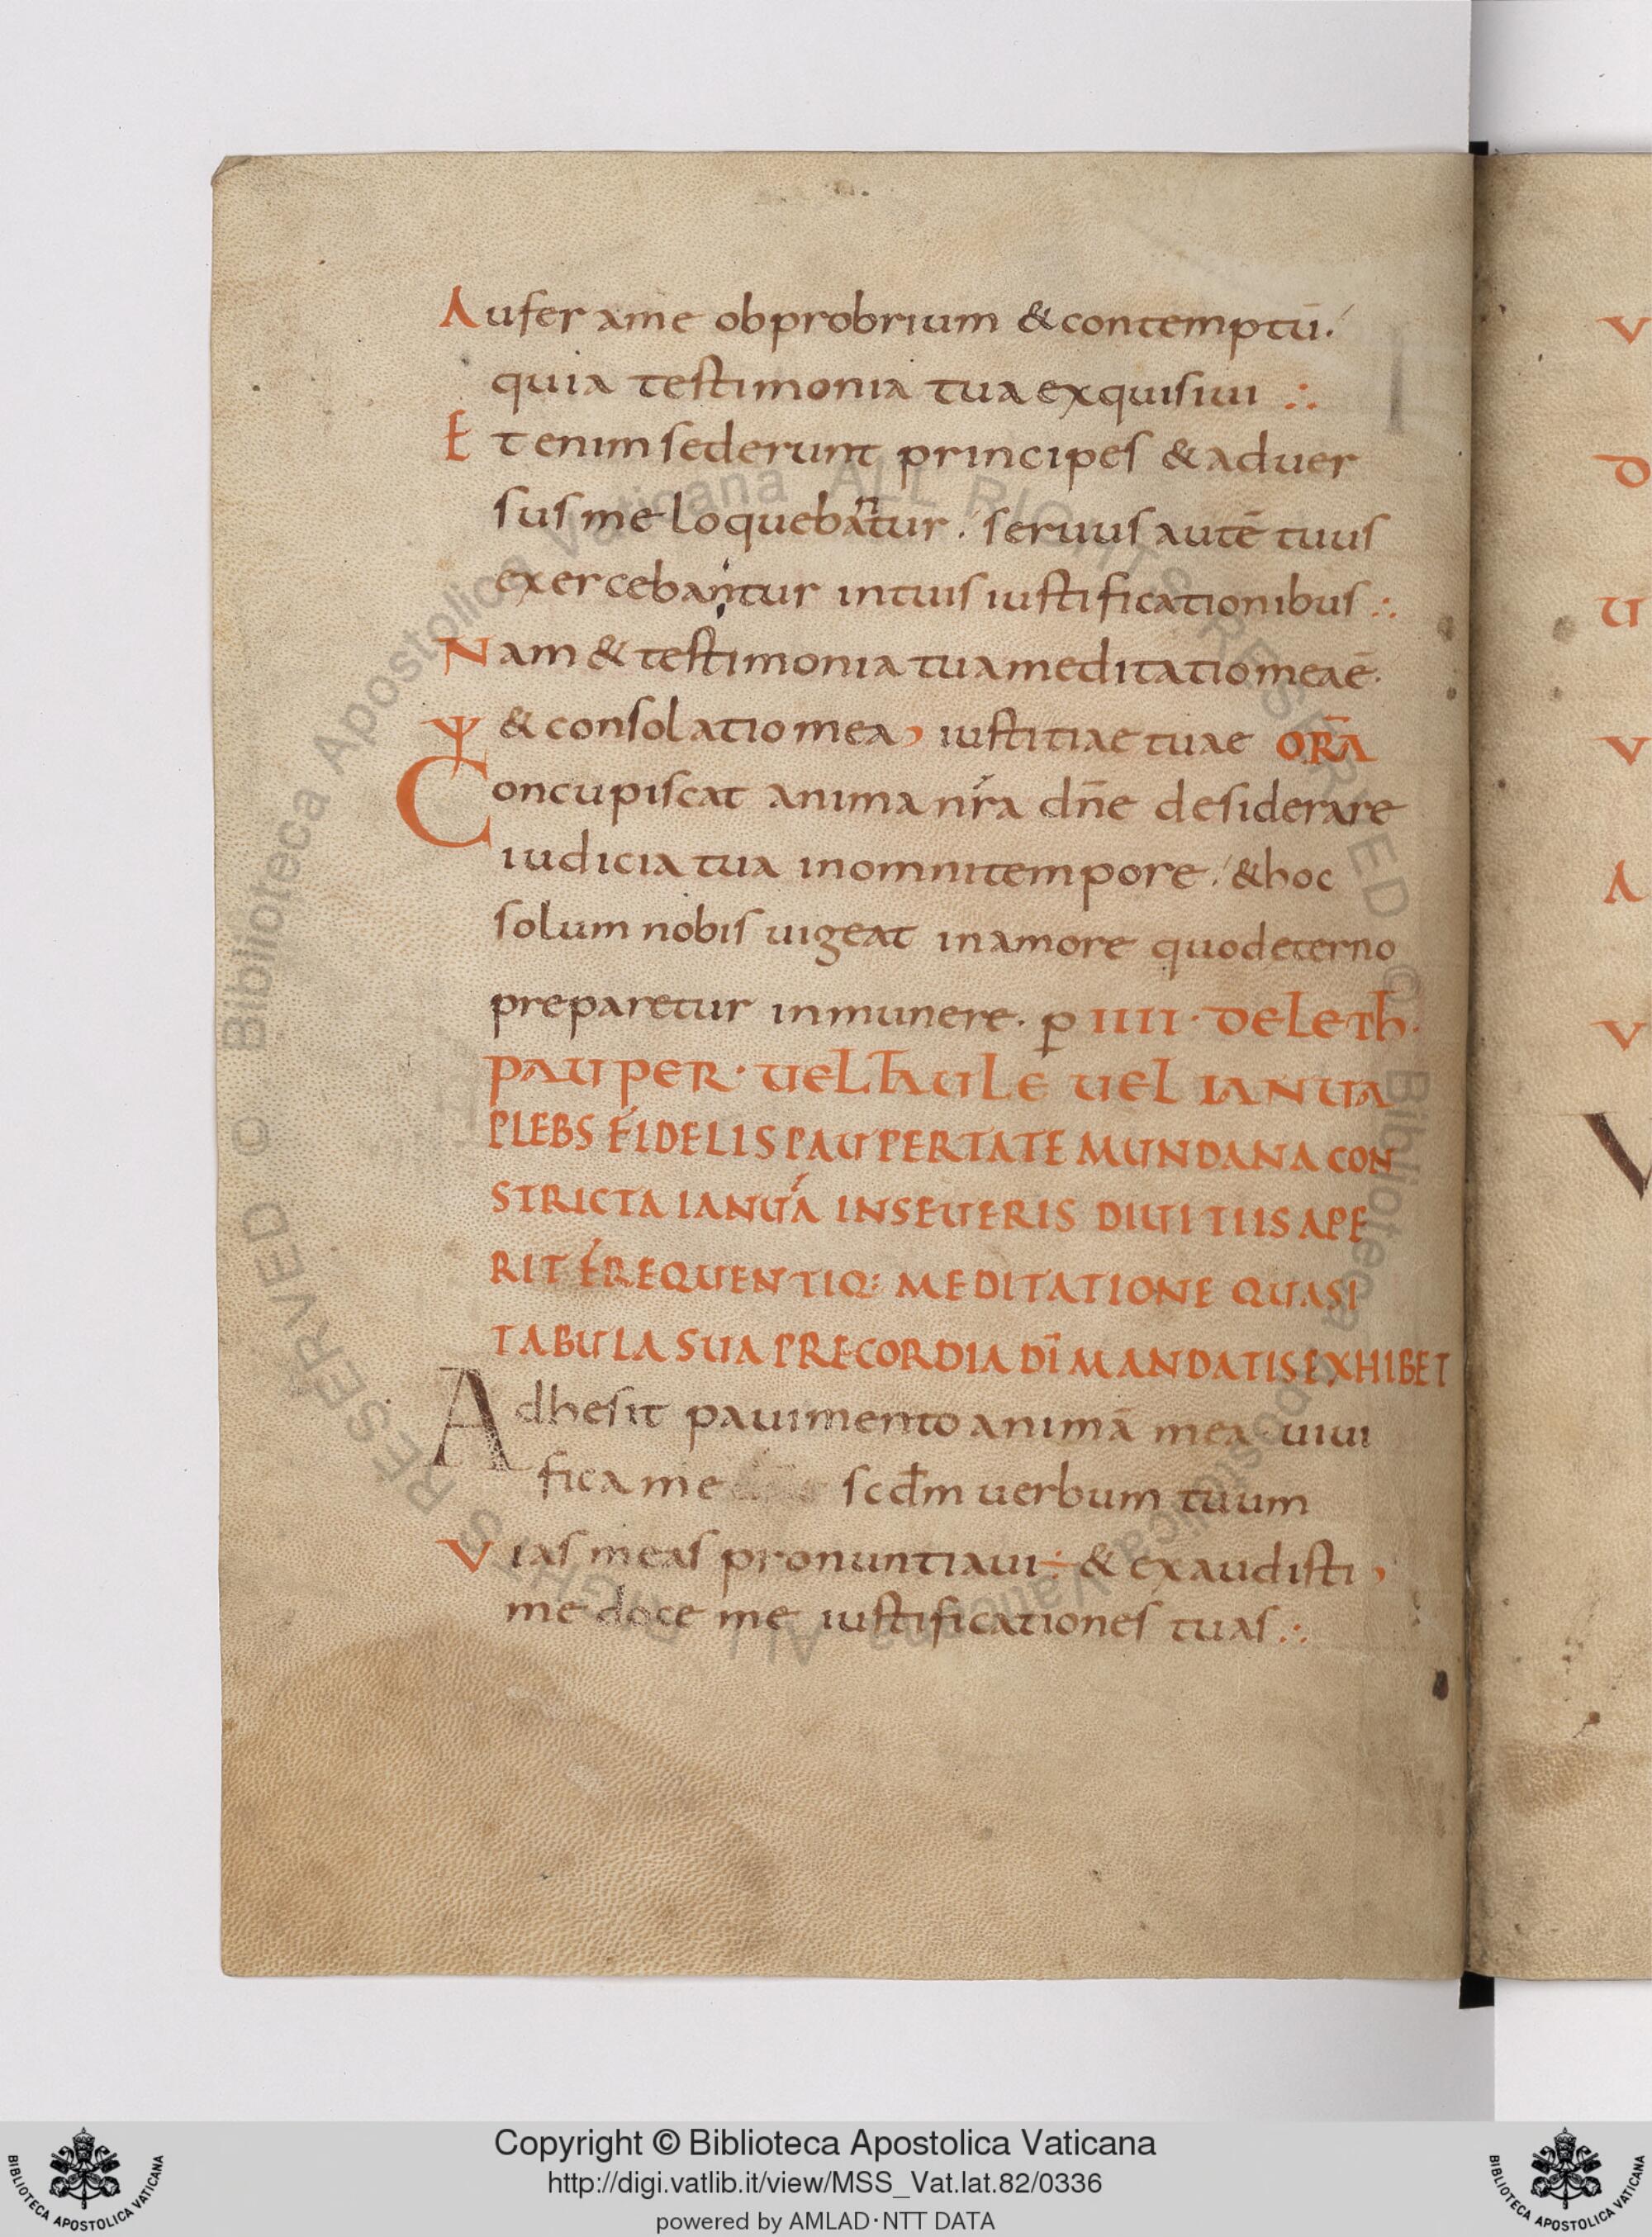 Aufer ame obprobrium & contemptū.
quia testimonia tua exquisiui :.
Et enim sederunt principes & aduer
sus me loquebantur. seruus autē tuus
exercebantur intuis iustificationibus :.
Nam & testimonia tua meditatio mea ē.
& consolatio mea, iustitiae tuae ORA̅
Concupiscat anima nr̄a dn̄e desiderare
iudicia tua inomni tempore. & hoc
solum nobis uigeat inamore quod eterno
preparetur inmunere. ꝑ IIII. DELETH.
PAUPER. UEL TAULE UEL IANUA
PLEBS FIDELIS PAUPERTATE MUNDANA CON
STRICTA IANUA INSEUERIS DIUITIIS APE
RIT FREQUENTIQ: MEDITATIONE QUASI
TABULA SUA PRECORDIA DI̅ MANDATIS EXHIBET
Adhesit pauimento animā mea uiui
fica me scdm̄ uerbum tuum
Vias meas pronuntiaui : & exaudisti,
me doce me iustificationes tuas :.
Copyright © Biblioteca Apostolica Vaticana
http://digi.vatlib.it/view/MSS_Vat.lat.82/0336
powered by AMLAD·NTT DATA
BIBLIOTECA APOSTOLICA VATICANA
BIBLIOTECA APOSTOLICA VATICANA